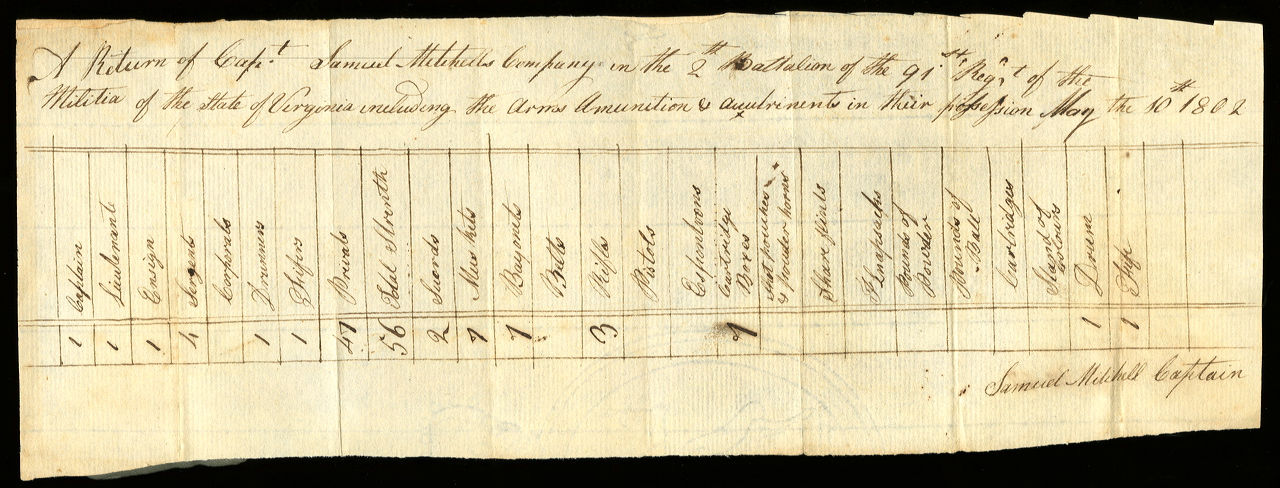 A Return of Capt. Samuel Mitchells Company in the 2th Battalion of the 91.st Regt of the
Militia of the State of Virginia including the Arms Amunition & acutrinents in their possession May the 10th 1802
Captain
Lieutenant
Ensign
Sergents
Corporals
Drummers
Fifers
Privats
Total Strenth
Swords
Muskits
Bayonets
Belts
Rifls
Pistols
Espontoons
Cartridge
Boxes
Shot pouches
& powder horns
Spare flints
Knapsacks
Pounds of
Powder
Pounds of
Ball
Cartridges
Stand of
Colours
Drum
Fife
1 1 1 4 1 1 47 56 2 7 7 3 7 1 1
Samuel Mitchell Captain